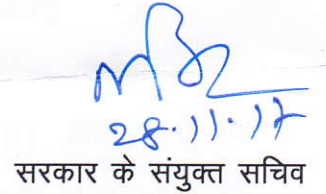 28.11.17
सरकार के संयुक्त सचिव